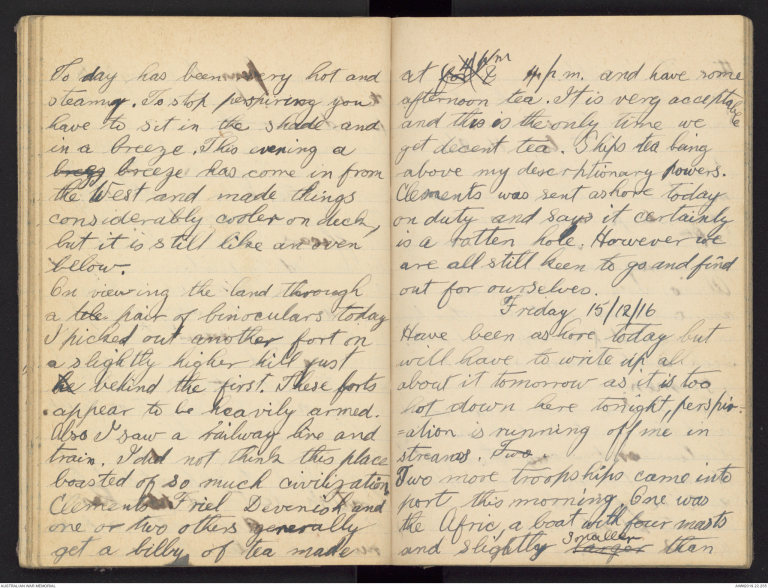 To day has been very hot and
steamy. To stop pespiring you
have to sit in the shade and
in a breeze. This evening a
breeze has come in from
the West and made things
considerably cooler on deck,
but it is still like an oven
below.
On viewing the land through
a pair of binoculars today
I picked out another fort on
a slightly higher hill just
behind the first. These forts
appear to be heavily armed.
Also I saw a railway line and
train. I did not think this place
boasted of so much civilization
Clements Friel Devenish and
one or two others generally
get a billy of tea made
at 4 p.m. and have some
afternoon tea. It is very acceptable
and this is the only time we
get decent tea. Ships tea being
above my descriptionary powers.
Clements was sent ashore today
on duty and says it certainly
is a rotten hole. However we
are all still keen to go and find
out for ourselves.
Friday 15/12/16
Have been ashore today but
will have to write up al
about it tomorrow as it is too
hot down here tonight, perspir=
=ation is running off me in
streams. Two
Two more troopships came into
port this morning. One was
the Afric, a boat with four masts
and slightly smaller than
AUSTRALIAN WAR MEMORIAL